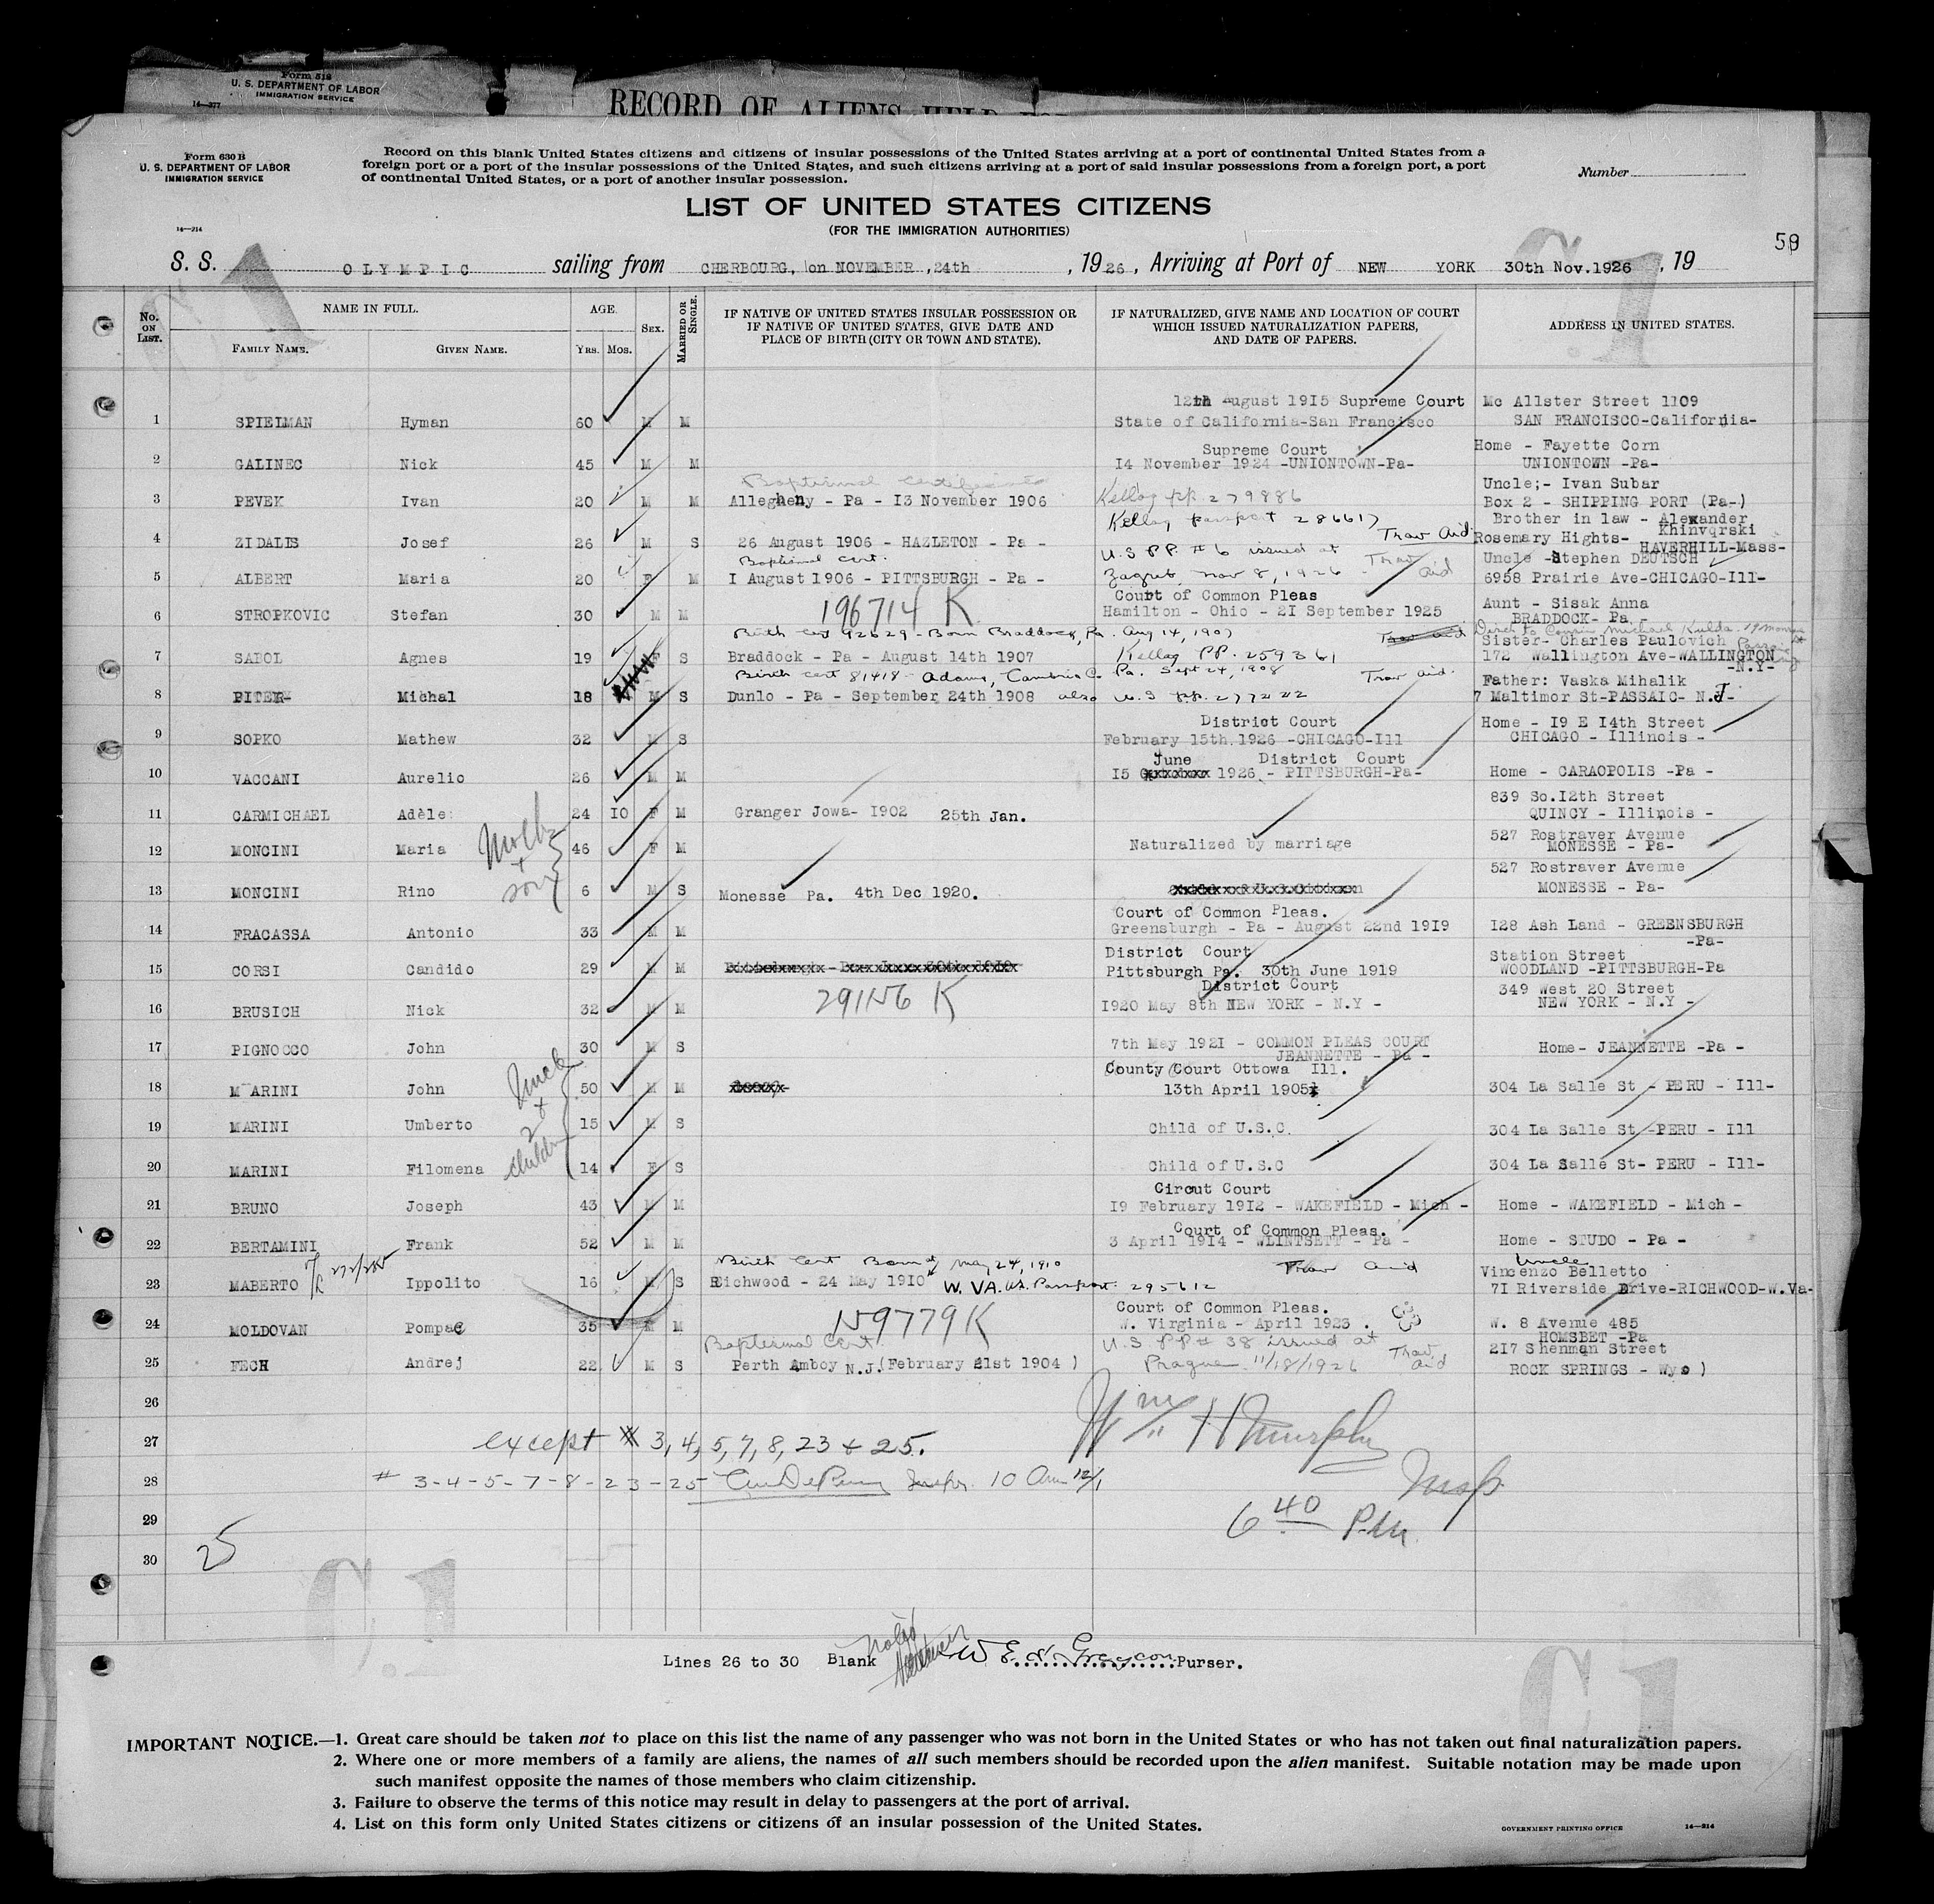 Form 518
U. S. DEPARTMENT OF LABOR
IMMIGRATION SERVICE
14—377
RECORD OF ALIENS HELD
Form 630 B
U. S. DEPARTMENT OF LABOR
IMMIGRATION SERVICE
14—214
Record on this blank United States citizens and citizens of insular possessions of the United States arriving at a port of continental United States from a
foreign port or a port of the insular possessions of the United States, and such citizens arriving at a port of said insular possessions from a foreign port, a port
of continental United States, or a port of another insular possession.
Number
LIST OF UNITED STATES CITIZENS
(FOR THE IMMIGRATION AUTHORITIES)
59
S. S. OLYMPIC sailing from CHERBOURG, on NOVEMBER ,24th , 19 26 , Arriving at Port of NEW YORK 30th Nov.1926 , 19
No. ON LIST.
NAME IN FULL.
FAMILY NAME. GIVEN NAME.
AGE.
YRS. MOS.
SEX.
MARRIED OR SINGLE.
IF NATIVE OF UNITED STATES INSULAR POSSESSION OR
IF NATIVE OF UNITED STATES, GIVE DATE AND
PLACE OF BIRTH (CITY OR TOWN AND STATE).
IF NATURALIZED, GIVE NAME AND LOCATION OF COURT
WHICH ISSUED NATURALIZATION PAPERS,
AND DATE OF PAPERS.
ADDRESS IN UNITED STATES.
12th August 1915 Supreme Court Mc Allster Street 1109
1 SPIELMAN Hyman 60 M M State of California-San Francisco SAN FRANCISCO-California-
Supreme Court Home - Fayette Corn
2 GALINEC Nick 45 M M 14 November 1924 -UNIONTOWN-Pa- UNIONTOWN -Pa-
Baptismal Certificate Uncle;- Ivan Subar
3 PEVEK Ivan 20 M M Allegheny - Pa - 13 November 1906 Kellog pp. 279886 Box 2 - SHIPPING PORT (Pa-)
Kellog passport 286617 Trav Aid Brother in law - Alexander Khinvqrski
4 ZIDALIS Josef 26 M S 26 August 1906 - HAZLETON - Pa - Rosemary Hights- HAVERHILL-Mass-
Baptismal Cert. U.S PP. # 6 issued at Trav Aid Uncle -Stephen DEUTSCH
5 ALBERT Maria 20 F M I August 1906 - PITTSBURGH - Pa - Zagreb, Nov 8, 1926 6958 Prairie Ave-CHICAGO-Ill-
196714 K Court of Common Pleas Aunt - Sisak Anna
6 STROPKOVIC Stefan 30 M M Hamilton - Ohio - 21 September 1925 BRADDOCK- Pa -
Birth Cert 92629 - Born Braddock, Pa. Aug 14, 1907 Trav Aid Direct to Cousin Michael Kulda.
7 SABOL Agnes 19 F S Braddock - Pa - August 14th 1907 Kellog PP. 259361 Sister- Charles Paulovich
172 Wallington Ave-WALLINGTON -N.Y-
Birth cert 81418 - Adams, Cambria Co. Pa. Sept 24, 1908 Trav Aid. Father: Vaska Mihalik
8 PITER- Michal 18 M S Dunlo - Pa - September 24th 1908 also U.S pp. 277222 7 Maltimor St-PASSAIC- N.J-
District Court Home - 19 E 14th Street
9 SOPKO Mathew 32 M S February 15th.1926 -CHICAGO-Ill CHICAGO - Illinois -
June District Court
10 VACCANI Aurelio 26 M M 15 1926 - PITTSBURGH-Pa- Home - CARAOPOLIS -Pa -
839 So.12th Street
11 CARMICHAEL Adèle 24 10 F M Granger Jowa- 1902 25th Jan. QUINCY - Illinois -
Moth + son
527 Rostraver Avenue
12 MONCINI Maria 46 F M Naturalized by marriage MONESSE - Pa-
527 Rostraver Avenue
13 MONCINI Rino 6 M S Monesse Pa. 4th Dec 1920. MONESSE - Pa-
Court of Common Pleas.
14 FRACASSA Antonio 33 M M Greensburgh - Pa - August 22nd 1919 128 Ash Land - GREENSBURGH -Pa-
District Court Station Street
15 CORSI Candido 29 M M Pittsburgh Pa. 30th June 1919 WOODLAND -PITTSBURGH-Pa
291156 K District Court 349 West 20 Street
16 BRUSICH Nick 32 M M 1920 May 8th NEW YORK - N.Y - NEW YORK - N.Y -
17 PIGNOCCO John 30 M S 7th May 1921 - COMMON PLEAS COURT JEANNETTE - Pa - Home- JEANNETTE -Pa -
Uncle + 2 childn
County Court Ottowa Ill.
18 MARINI John 50 M M 13th April 1905 304 La Salle St - PERU - Ill-
19 MARINI Umberto 15 M S Child of U.S.C. 304 La Salle St -PERU - Ill
20 MARINI Filomena 14 F S Child of U.S.C 304 La Salle St- PERU - Ill-
Circut Court
21 BRUNO Joseph 43 M M 19 February 1912 - WAKEFIELD - Mich - Home - WAKEFIELD - Mich -
Court of Common Pleas.
22 BERTAMINI Frank 52 M M 3 April 1914 - WLINTSETT - Pa - Home - STUDO - Pa -
Birth Cert Born at May 24, 1910 Trav Aid Uncle
Vincenzo Belletto
23 MABERTO Ippolito 16 M S Richwood - 24 May 1910 W. VA. U.S. Passport. 295612 71 Riverside Drive-RICHWOOD-W.Va-
159779 K Court of Common Pleas.
24 MOLDOVAN Pompae 35 M M W. Virginia - April 1923 . W. 8 Avenue 485
HOMSBET -Pa
Baptismal Cert. U.S PP # 38 issued at Trav Aid 217 Shenman Street
25 FECH Andrej 22 M S Perth Amboy N.J.(February 21st 1904 ) Prague 11/18/1926 ROCK SPRINGS - Wyo )
26
27 except # 3, 4, 5, 7, 8, 23 + 25. Wm H Murphy
28 # 3-4-5-7-8-23-25 Inspr. 10 Am 12/1 Insp.
29 6 40 P.M.
30 25
C.1
Lines 26 to 30 Blank W E H Grayson Purser.
IMPORTANT NOTICE.—1. Great care should be taken not to place on this list the name of any passenger who was not born in the United States or who has not taken out final naturalization papers.
2. Where one or more members of a family are aliens, the names of all such members should be recorded upon the alien manifest. Suitable notation may be made upon
such manifest opposite the names of those members who claim citizenship.
3. Failure to observe the terms of this notice may result in delay to passengers at the port of arrival.
4. List on this form only United States citizens or citizens of an insular possession of the United States.
GOVERNMENT PRINTING OFFICE 14—214